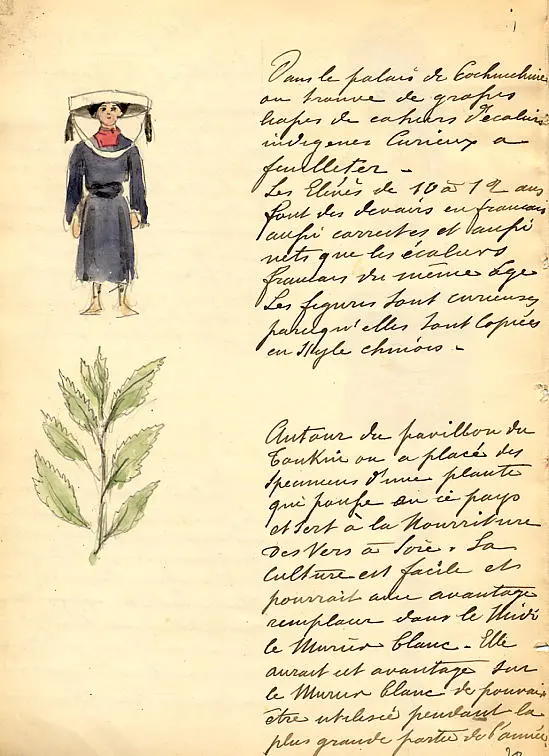 Dans le palais de Cochinchine
on trouve de grosses
liapes de cahiers d'écoliers
indigenes Curieux a
feuilleter -
Les Elèves de 10 à 12 ans
font des devoirs en français
aussi correctes et aussi
nets que les écoliers
français du même âge
Les figures sont curieuses
parcequ'elles sont Copiées
en style chinois -
Autour du pavillon du
Tonkin on a placé des
Specimens d'une plante
qui pousse en ce pays
et sert à la Nourriture
des Vers à Soie. La
Culture est facile et
pourrait avec avantage
remplacer dans le Midi
le Murier blanc - Elle
aurait cet avantage sur
le Murier blanc de pouvoir
être utilisée pendant la
plus grande partie de l'année